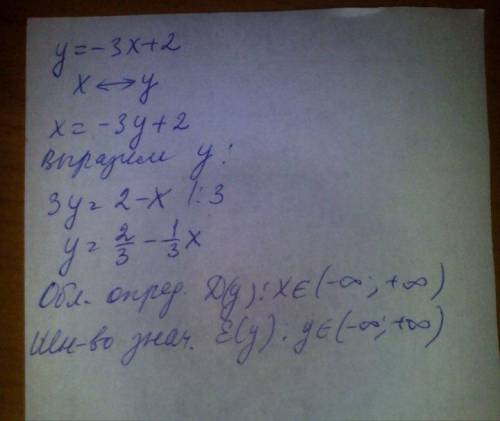 y=-3x+2
x↔y
x=-3y+2
выразим y:
3y=2-x |:3
y=2/3-1/3x
Обл. опред. D(y): x∈(-∞;+∞)
Мн-во знач. E(y): y∈(-∞;+∞)